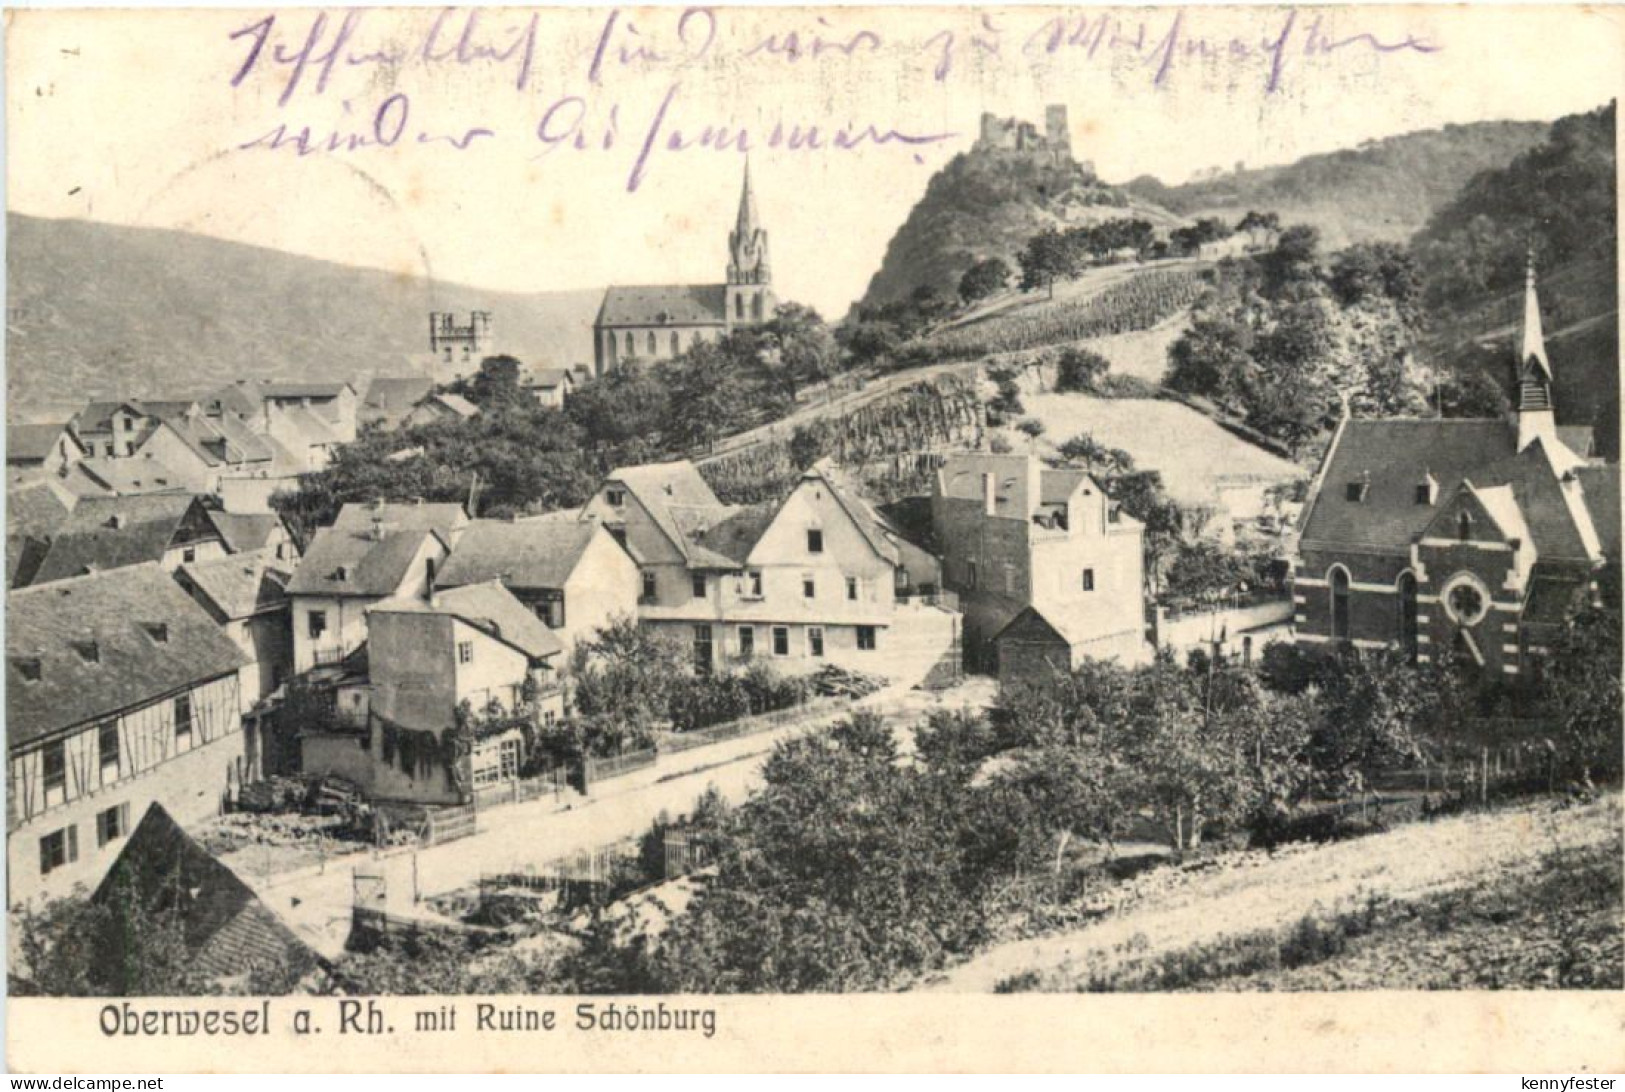 Hoffentlich sind wir zu Weihnachten
wieder beisammen.
Oberwesel a. Rh. mit Ruine Schönburg
www.delcampe.net
kennyfester